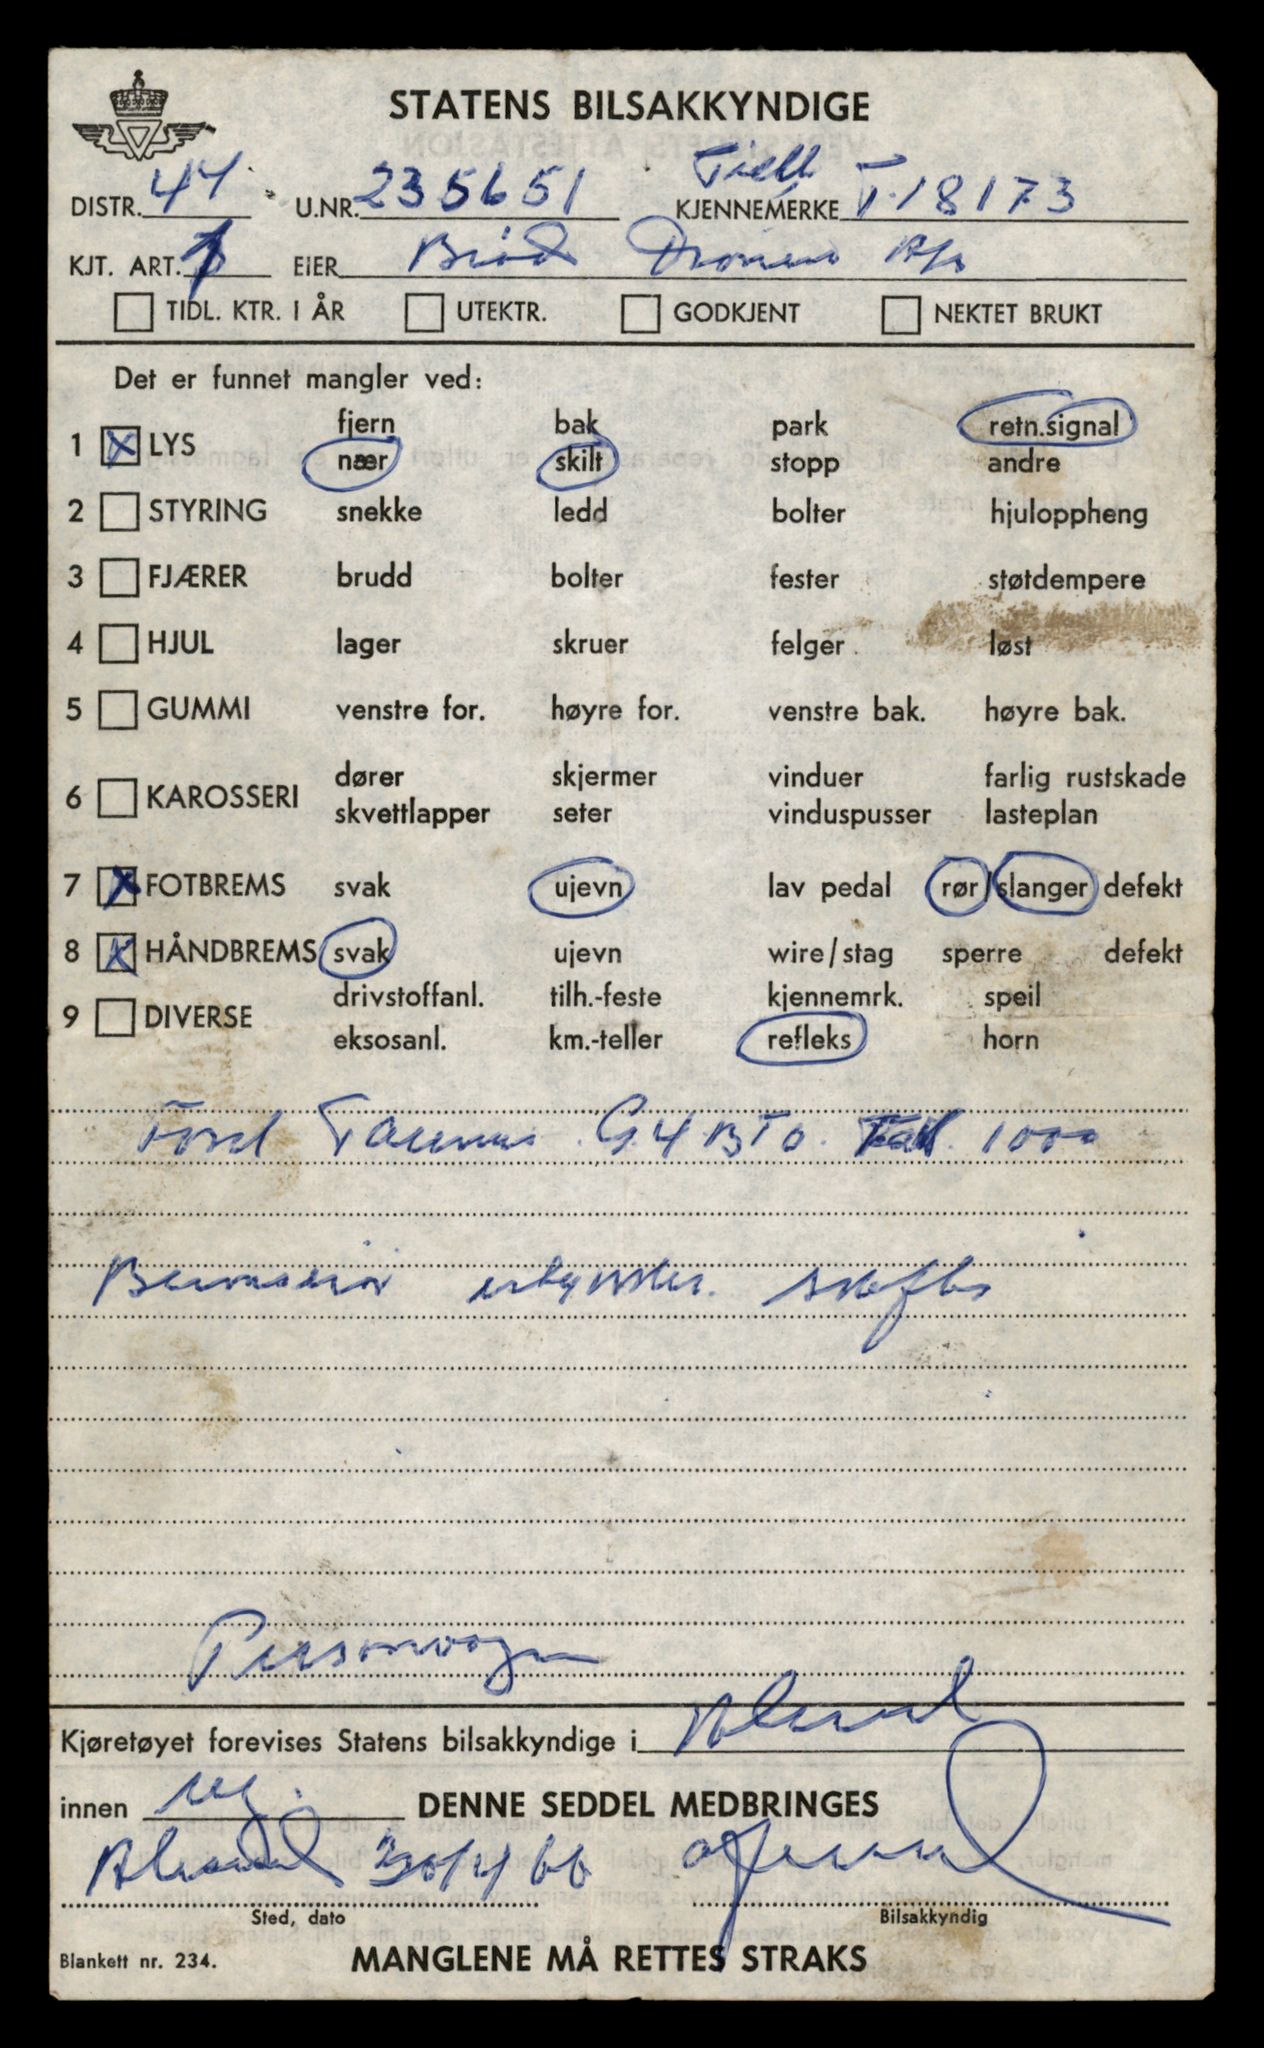 STATENS BILSAKKYNDIGE
DISTR. 44 U.NR. 235651 KJENNEMERKE T-18173
KJT. ART. 1 EIER Brød
TIDL. KTR. I ÅR UTEKTR. GODKJENT NEKTET BRUKT
Det er funnet mangler ved:
fjern bak park retn.signal
1 X LYS
nær skilt stopp andre
2 STYRING snekke ledd bolter hjuloppheng
3 FJÆRER brudd bolter fester støtdempere
4 HJUL lager skruer felger løst
5 GUMMI venstre for. høyre for. venstre bak. høyre bak.
dører skjermer vinduer farlig rustskade
6 KAROSSERI
skvettlapper seter vinduspusser lasteplan
7 X FOTBREMS svak ujevn lav pedal rør/slanger defekt
8 X HÅNDBREMS svak ujevn wire/stag sperre defekt
drivstoffanl. tilh.-feste kjennemrk. speil
9 DIVERSE
eksosanl. km.-teller refleks horn
Ford Taunus G4BTO 1000
Personvogn
Kjøretøyet forevises Statens bilsakkyndige i Ålesund
innen DENNE SEDDEL MEDBRINGES
Ålesund 20/4 66
Sted, dato Bilsakkyndig
Blankett nr. 234. MANGLENE MÅ RETTES STRAKS